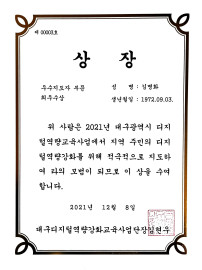 제 00003호
상 장
우수지도자 부문
최우수상
성 명 : 김병화
생년월일 : 1972.09.03.
위 사람은 2021년 대구광역시 디지
털역량교육사업에서 지역 주민의 디지
털역량강화를 위해 적극적으로 지도하
여 타의 모범이 되므로 이 상을 수여
합니다.
2021년 12월 8일
대구디지털역량강화교육사업단장김현우